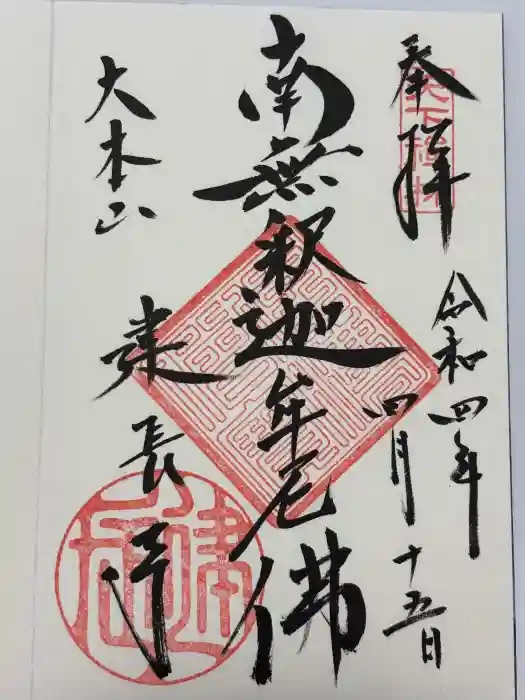 奉拝
天下禅林
令和四年
四月十五日
南無釈迦牟尼佛
大本山
建長寺